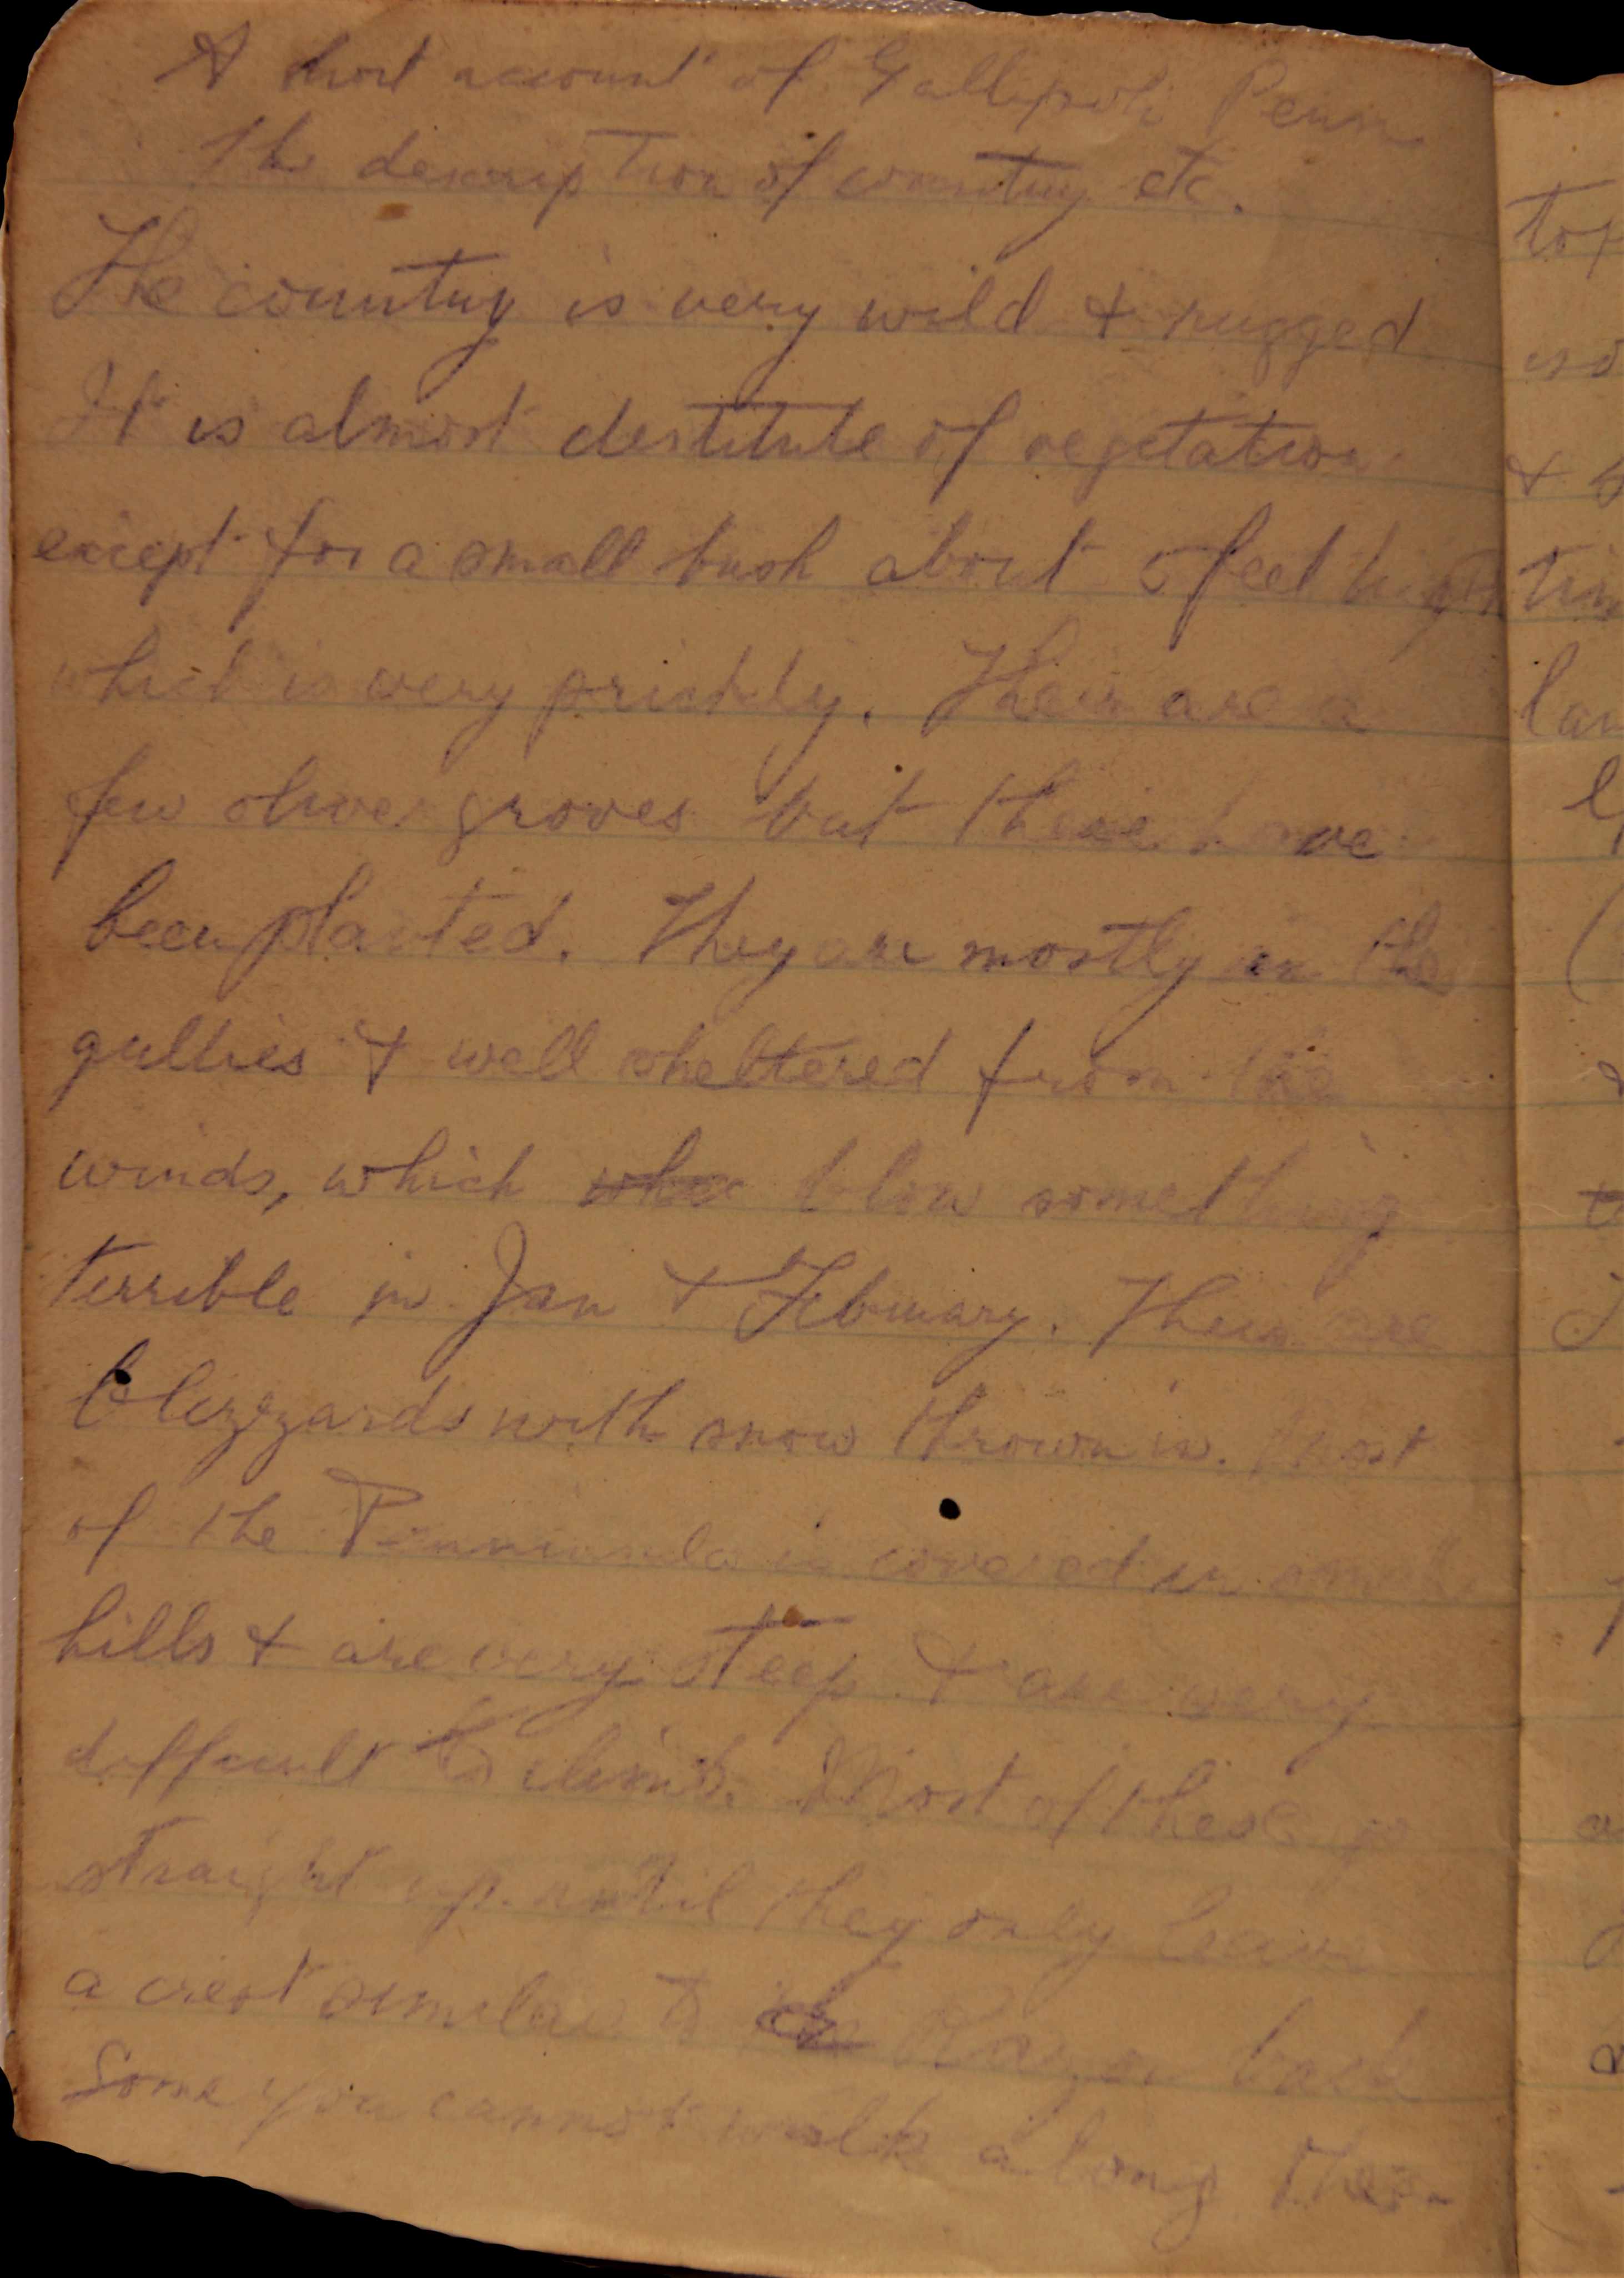 A short account of Gallipoli Penin
The description of country etc.
The country is very wild & rugged
It is almost destitute of vegetation
except for a small bush about 5 feet high
which is very prickly. Their are a
few olive groves but these have
been planted. They are mostly in the
gullies & well sheltered from the
winds, which whe blow something
terrible in Jan & February. Their are
blizzards with snow thrown in. Most
of the is covered in small
hills & are very steep & are very
difficult to climb. Most of these go
straight up until they only leave
a crest similar to Razor back
Some you cannot walk along the
top
&